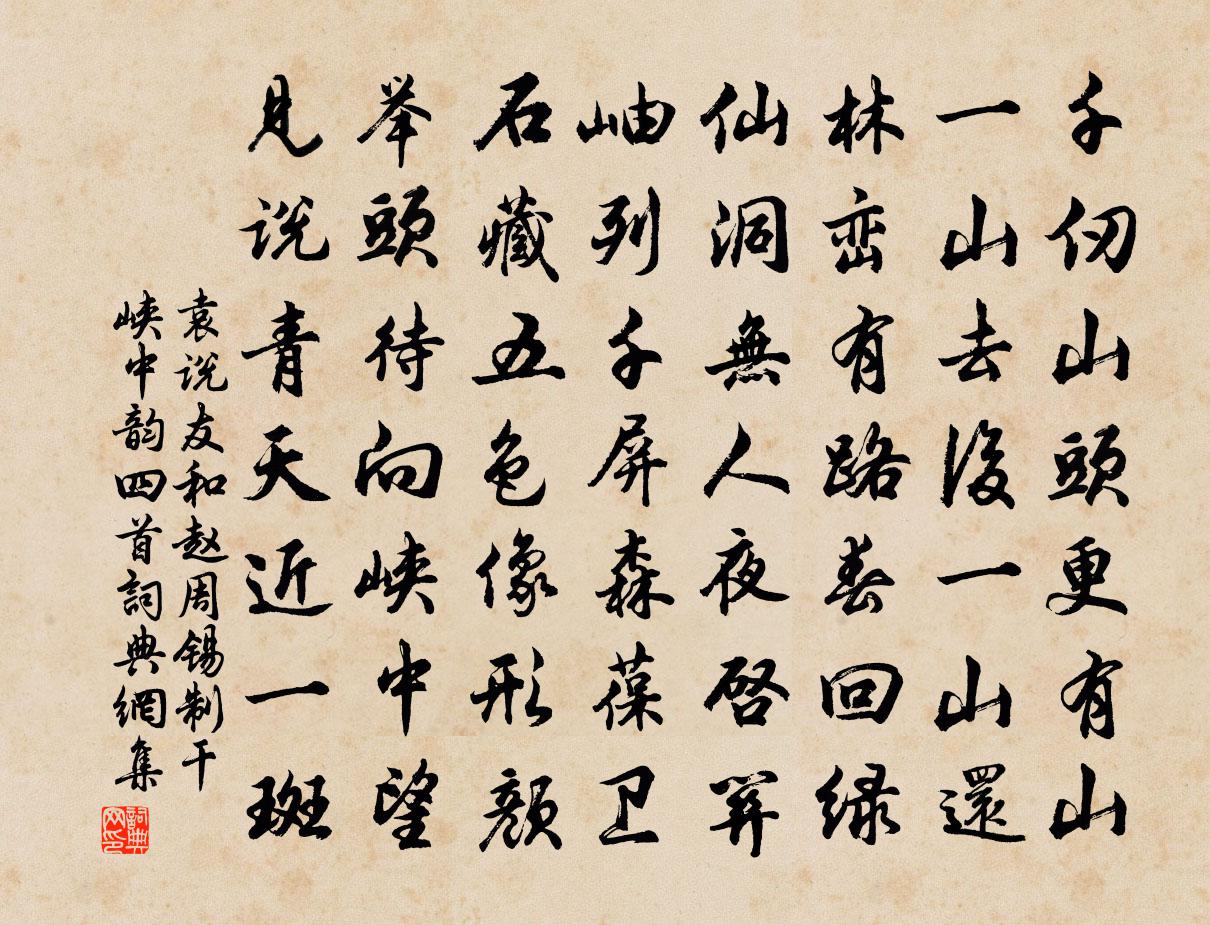 千仞山頭更有山
一山去後一山還
林峦有路春回绿
仙洞無人夜啓關
岫列千屏森葆卫
石藏五色像形顏
举頭待向峽中望
見说青天近一斑
袁说友和赵周锡制干
峽中韵四首詞典網集
詞典網印